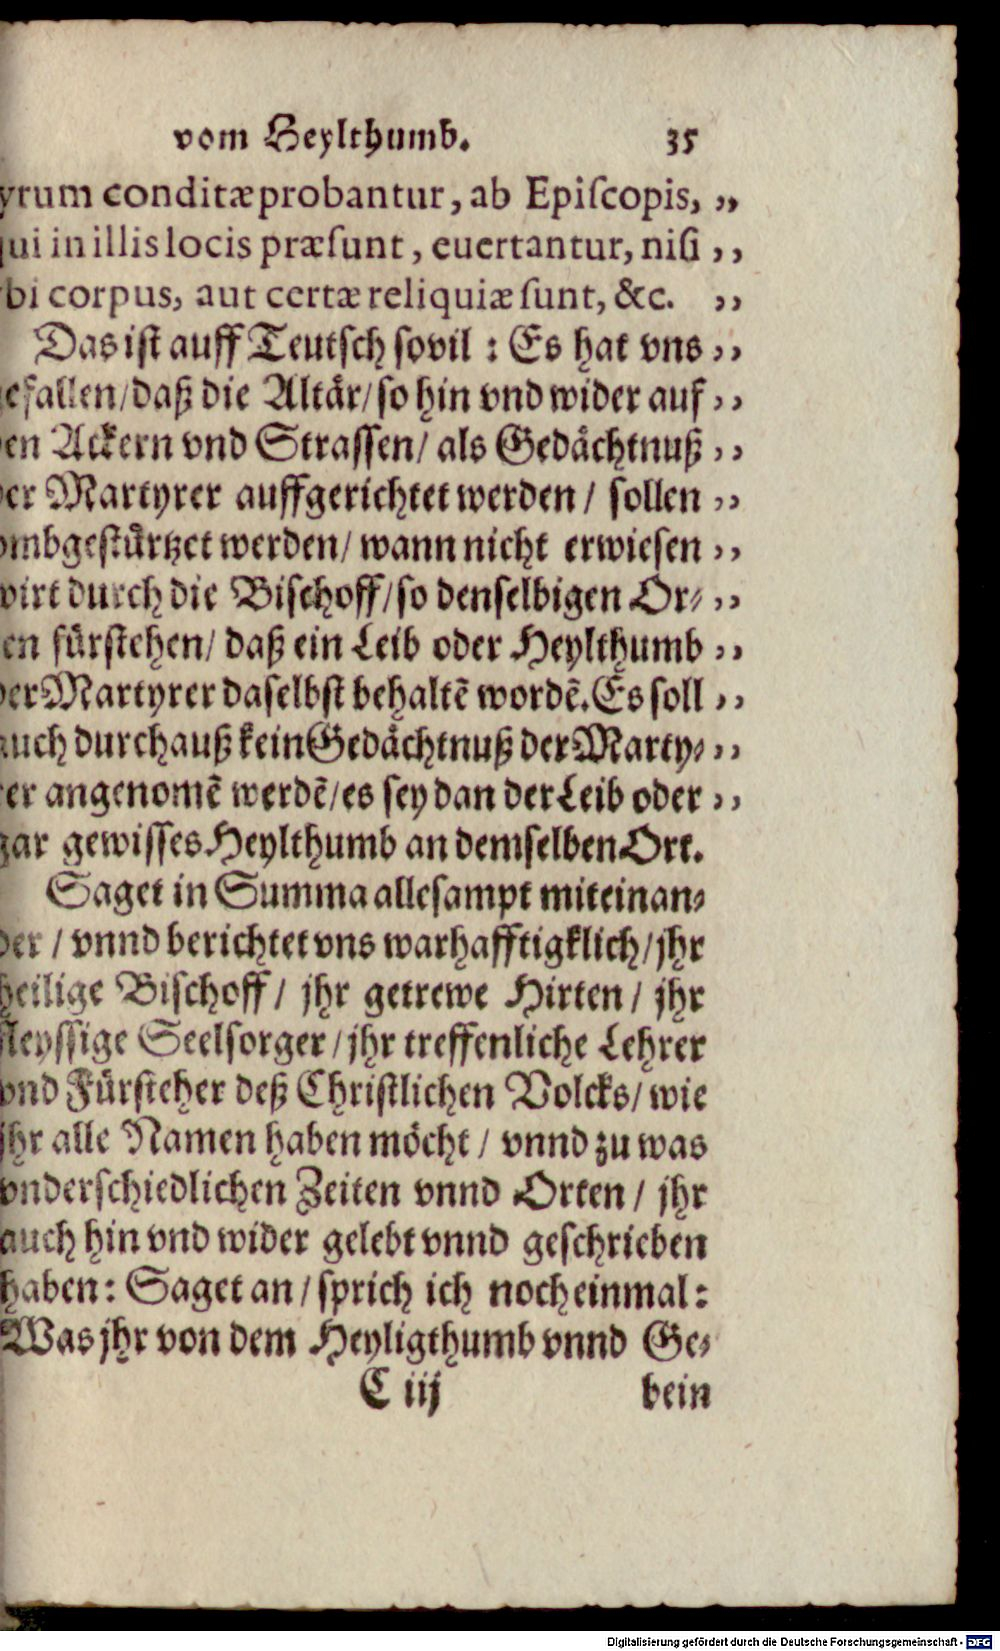 vom Heylthumb. 35
yrum conditæ probantur, ab Episcopis, ,,
qui in illis locis præsunt, euertantur, nisi ,,
bi corpus, aut certæ reliquiæ sunt, &c. ,,
Das ist auff Teutsch sovil : Es hat vns ,,
gefallen/ daß die Altär/ so hin vnd wider auf ,,
den Ackern vnd Strassen/ als Gedächtnuß ,,
der Martyrer auffgerichtet werden / sollen ,,
vmbgestürtzet werden/ wann nicht erwiesen ,,
wirt durch die Bischoff/ so denselbigen Or⸗ ,,
en fürstehen/ daß ein Leib oder Heylthumb ,,
der Martyrer daselbst behaltē wordē. Es soll ,,
auch durchauß kein Gedächtnuß der Marty⸗ ,,
rer angenomē werdē/ es sey dan der Leib oder ,,
gar gewisses Heylthumb an demselben Ort.
Saget in Summa allesampt miteinan⸗
der / vnnd berichtet vns warhafftigklich/ jhr
heilige Bischoff/ jhr getrewe Hirten / jhr
fleyssige Seelsorger / jhr treffenliche Lehrer
vnd Fürsteher deß Christlichen Volcks/ wie
jhr alle Namen haben möcht / vnnd zu was
vnderschiedlichen Zeiten vnnd Orten / jhr
auch hin vnd wider gelebt vnnd geschrieben
haben: Saget an / sprich ich noch einmal:
Was jhr von dem Heyligthumb vnnd Ge⸗
C iij bein
Digitalisierung gefördert durch die Deutsche Forschungsgemeinschaft - DFG